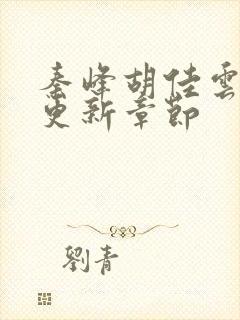 秦峰胡佳雲
更新章節
劉青